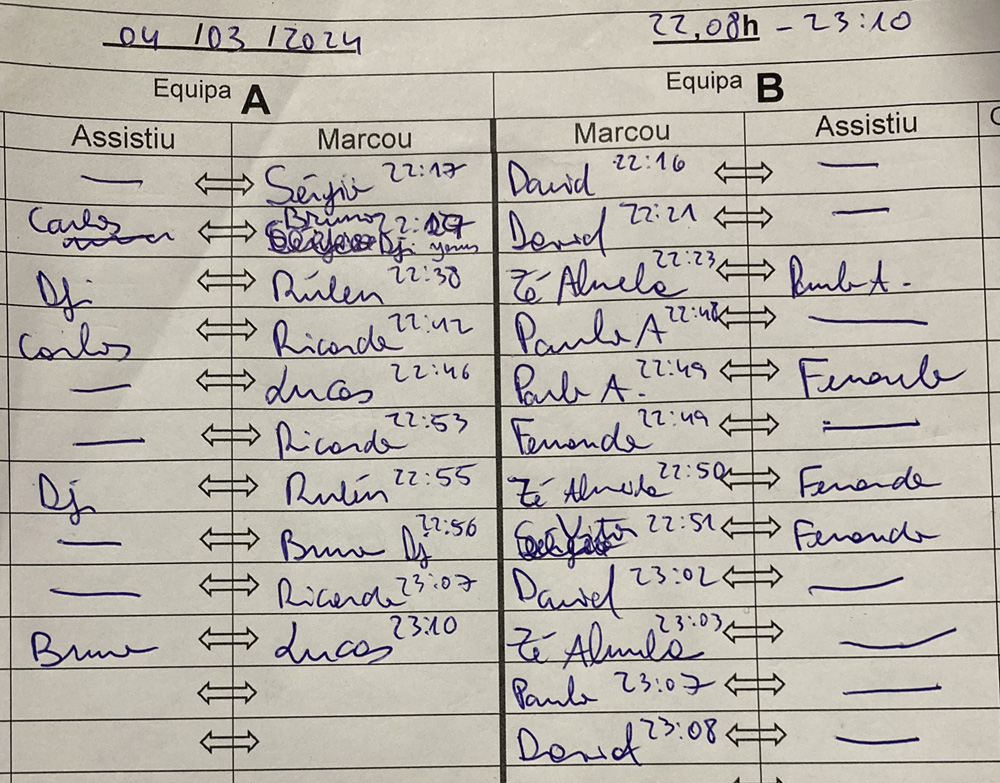 04 /03 /2024 22,08h - 23:10
Equipa A Equipa B
Assistiu Marcou Marcou Assistiu
— Sérgio 22:17 David 22:16 —
Carlos Bruno 22:27 David 22:21 —
Dji Rúben 22:38 Zé Almeida 22:23 Paulo A.
Carlos Ricardo 22:42 Paulo A 22:48 —
— Lucas 22:46 Paulo A. 22:49 Fernando
— Ricardo 22:53 Fernando 22:49 —
Dji Rubén 22:55 Zé Almeida 22:50 Fernando
— Bruno Dj 22:56 Vitor 22:51 Fernando
— Ricardo 23:07 David 23:02 —
Bruno Lucas 23:10 Zé Almeida 23:03 —
Paulo 23:07 —
David 23:08 —